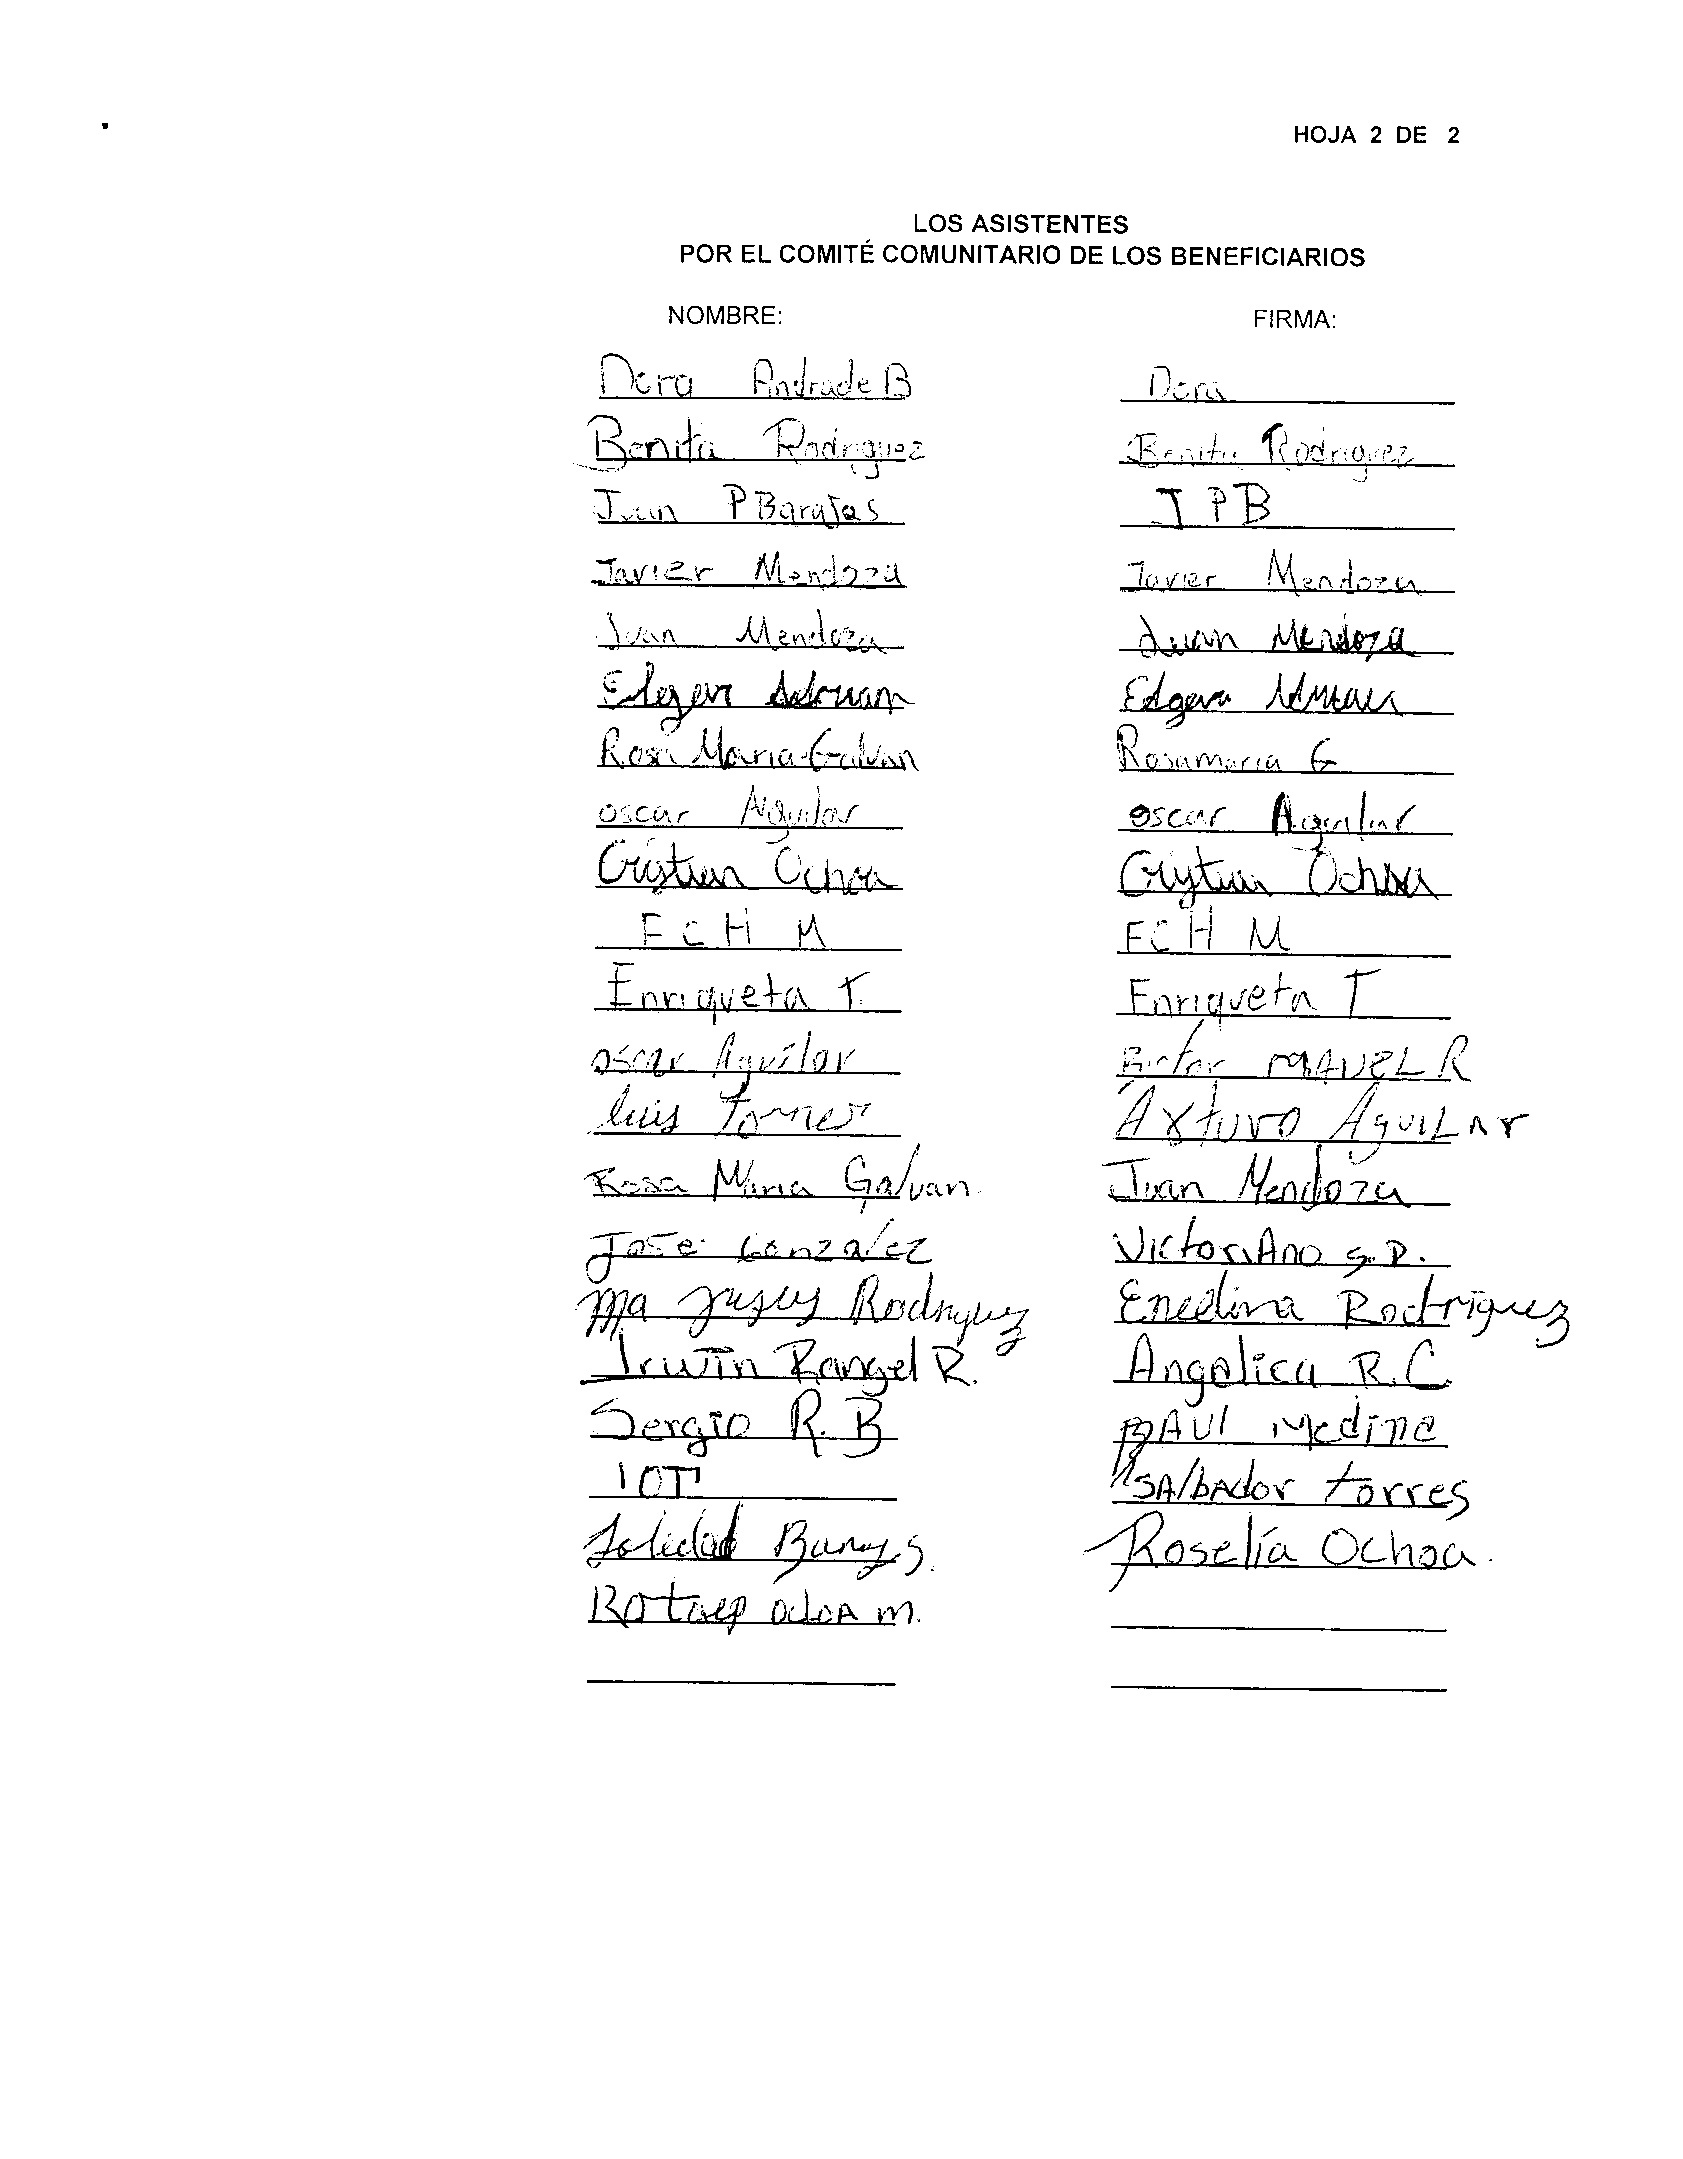 HOJA 2 DE 2
LOS ASISTENTES
POR EL COMITÉ COMUNITARIO DE LOS BENEFICIARIOS
NOMBRE: FIRMA:
Dora Andrade B Dora
Benita Rodriguez Benita Rodriguez
Juan P Barajas J P B
Javier Mendoza Javier Mendoza
Juan Mendoza Juan Mendoza
Rosa Maria Galvan Rosamaria G
oscar Aguilar oscar Aguilar
Cristian Ochoa Ochoa
F C H M F C H M
Enriqueta T. Enriqueta T
oscar Aguilar R
luis Arturo AguiLAr
Rosa Maria Galvan Juan Mendoza
Jose Gonzalez VictoriAno
Ma Jesus Rodriguez Enedina Rodriguez
Irwin Rangel R. Angelica R.C.
Sergio R. B Medina
IOT SAlbAdor torres
Soledad Roselia Ochoa.
OchoA m.